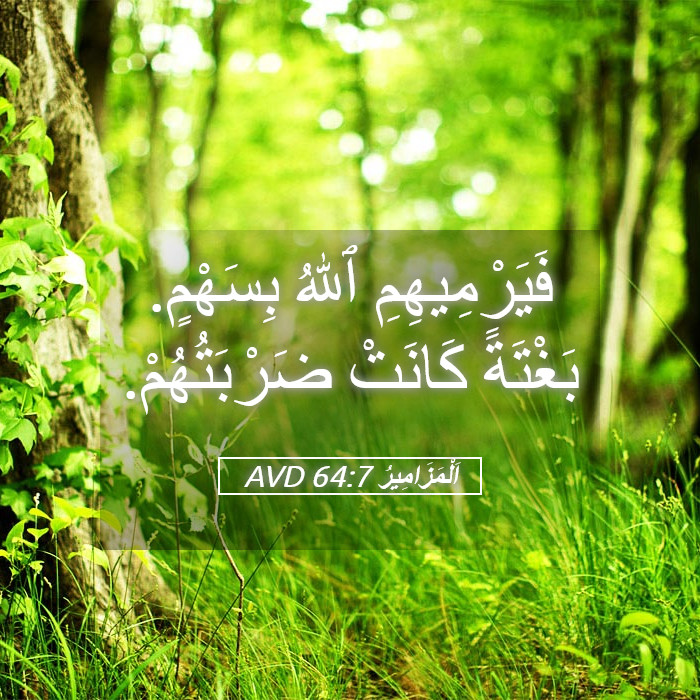 فَيَرْمِيهِمِ ٱللهُ بِسَهْمٍ.
بَغْتَةً كَانَتْ ضَرْبَتُهُمْ.
اَلْمَزَامِيرُ 64:7 AVD